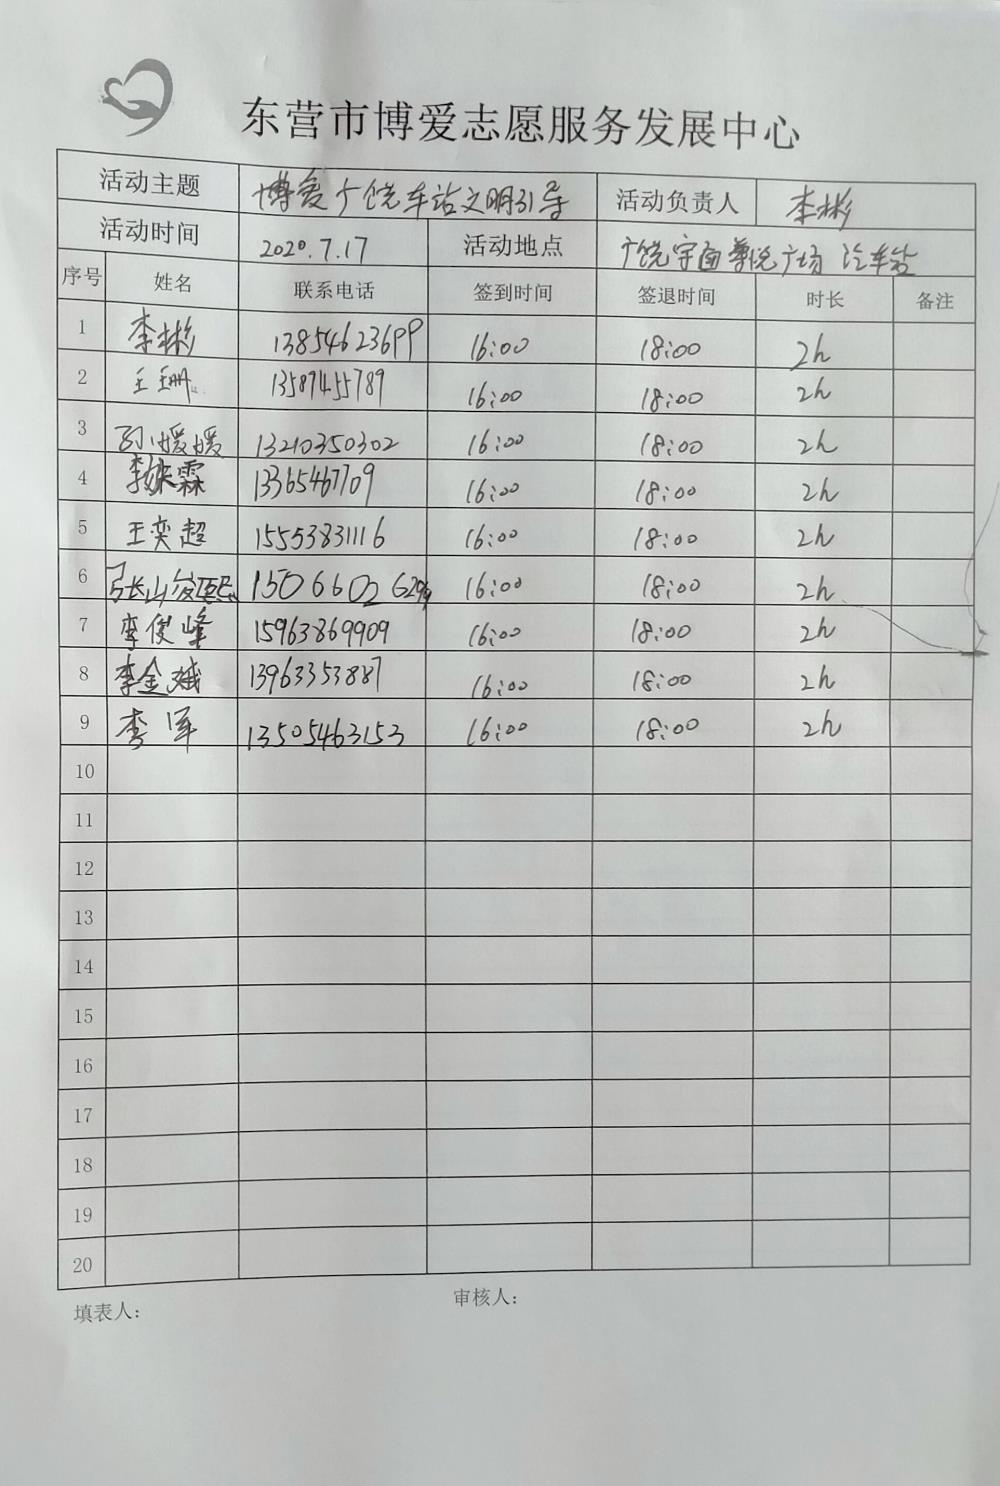 东营市博爱志愿服务发展中心
活动主题 博爱广饶车站文明引导 活动负责人 李彬
活动时间 2020.7.17 活动地点 广饶 广场 汽车站
序号 姓名 联系电话 签到时间 签退时间 时长 备注
1 李彬 13854623699 16:00 18:00 2h
2 王珊 13587455789 16:00 18:00 2h
3 孙媛媛 13210350302 16:00 18:00 2h
4 李 霖 13365467709 16:00 18:00 2h
5 王奕超 15553831116 16:00 18:00 2h
6 16:00 18:00 2h
7 李俊峰 15963869909 16:00 18:00 2h
8 李金斌 13963353887 16:00 18:00 2h
9 李军 13505463153 16:00 18:00 2h
10
11
12
13
14
15
16
17
18
19
20
填表人: 审核人: